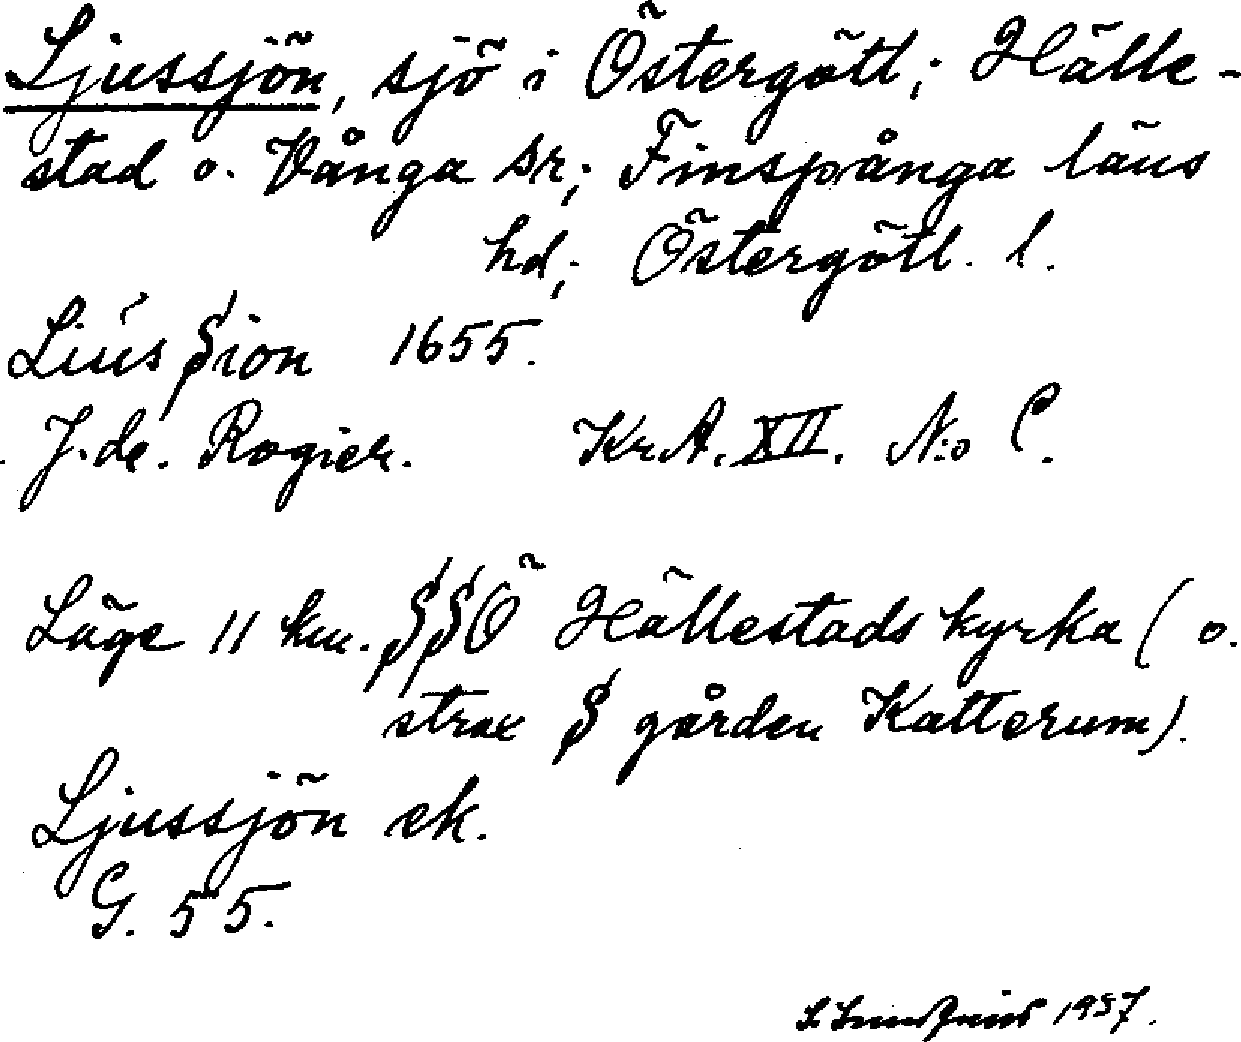 Ljussjön, sjö i Östergötl; Hälle-
stad o. Vånga sr; Finspånga läns
hd; Östergötl. l.
Liús Sion 1655.
J. de. Rogier. Kr.A. XII. N:o C.
Läge 11 km. SSÖ Hällestads kyrka (o.
strax S gården Katterum).
Ljussjön ek.
G. 55.
1957.